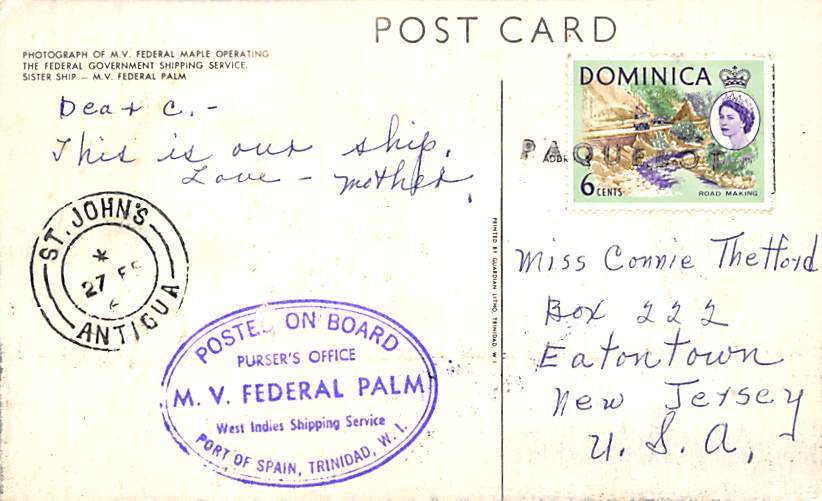 POST CARD
PHOTOGRAPH OF M.V. FEDERAL MAPLE OPERATING
THE FEDERAL GOVERNMENT SHIPPING SERVICE.
SISTER SHIP — M.V. FEDERAL PALM
Dear C. -
This is our ship.
Love - Mother.
ST. JOHN'S
*
27 FE
ANTIGUA
POSTED ON BOARD
PURSER'S OFFICE
M. V. FEDERAL PALM
West Indies Shipping Service
PORT OF SPAIN, TRINIDAD, W. I.
PRINTED BY GUARDIAN LITHO, TRINIDAD, W I
DOMINICA
PAQUEBOT
6 CENTS
ROAD MAKING
Miss Connie Thetford
Box 222
Eatontown
New Jersey
U. S. A.